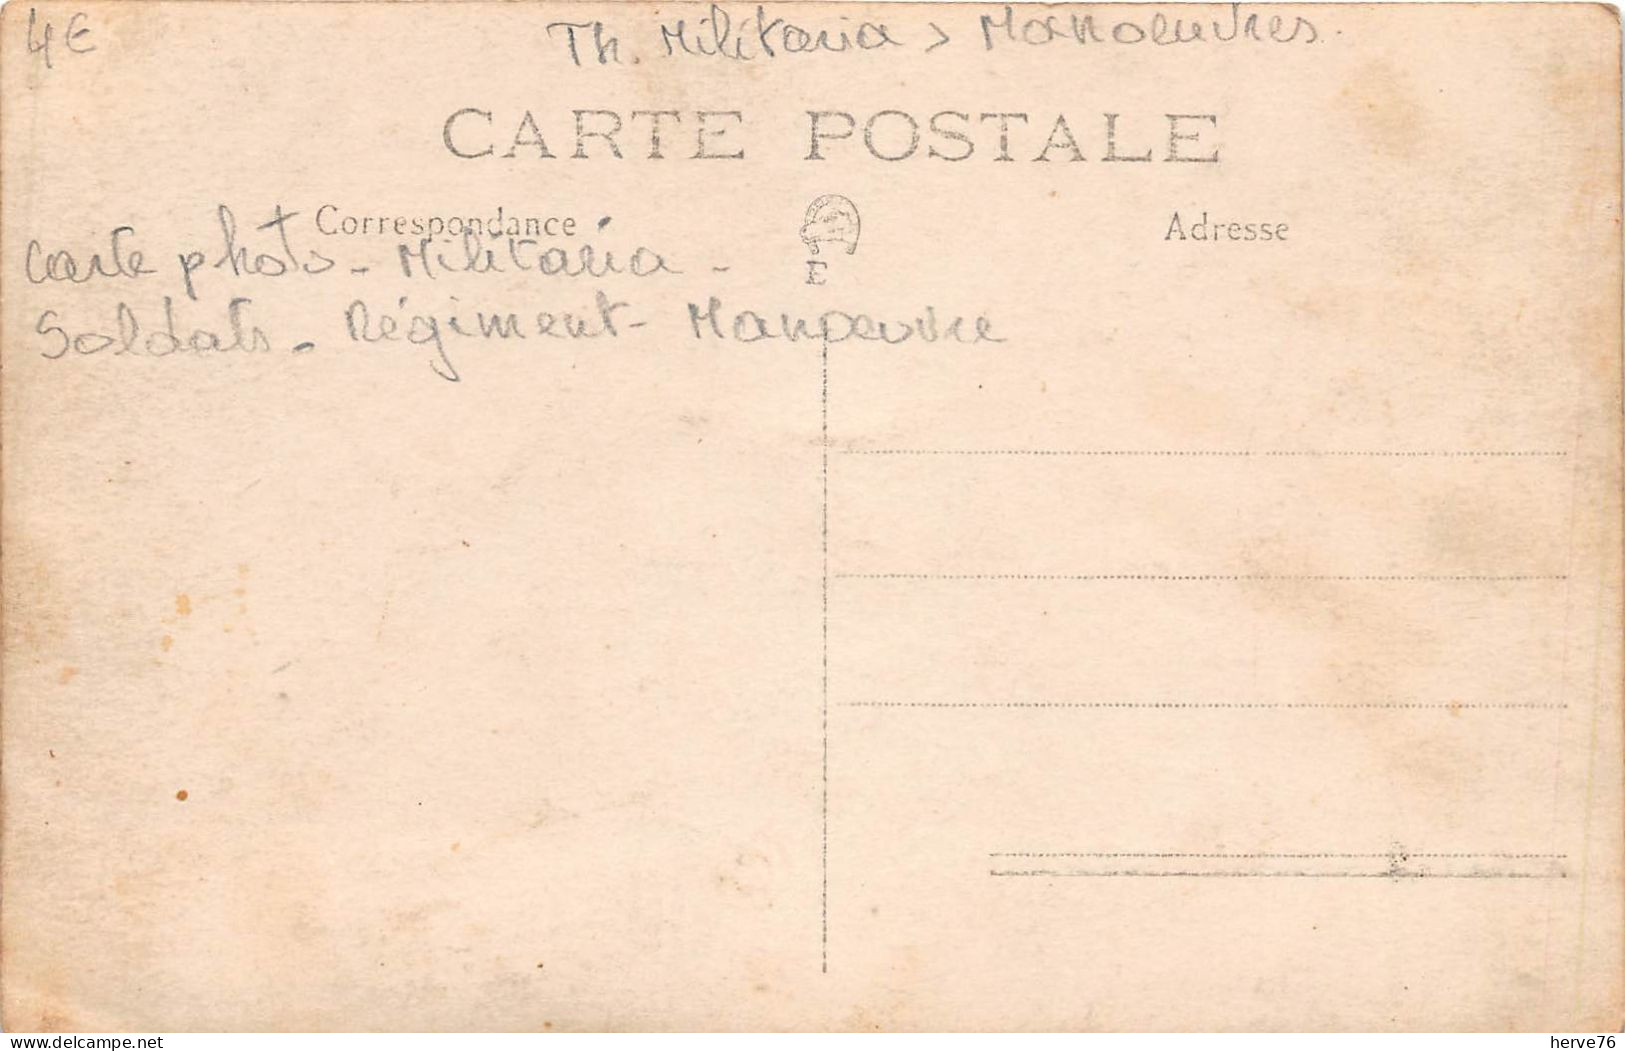 4€
Th. Militaria > Manoeuvres.
CARTE POSTALE
Correspondance
Adresse
E
Carte photo - Militaria -
Soldats - Régiment - Manoeuvre
www.delcampe.net
herve76